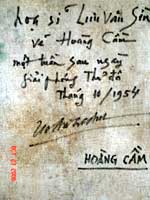 họa sĩ Lưu Văn Sìn
vẽ Hoàng Cầm
một tuần sau ngày
giải phóng Thủ đô
tháng 10/1954
HOÀNG CẦM